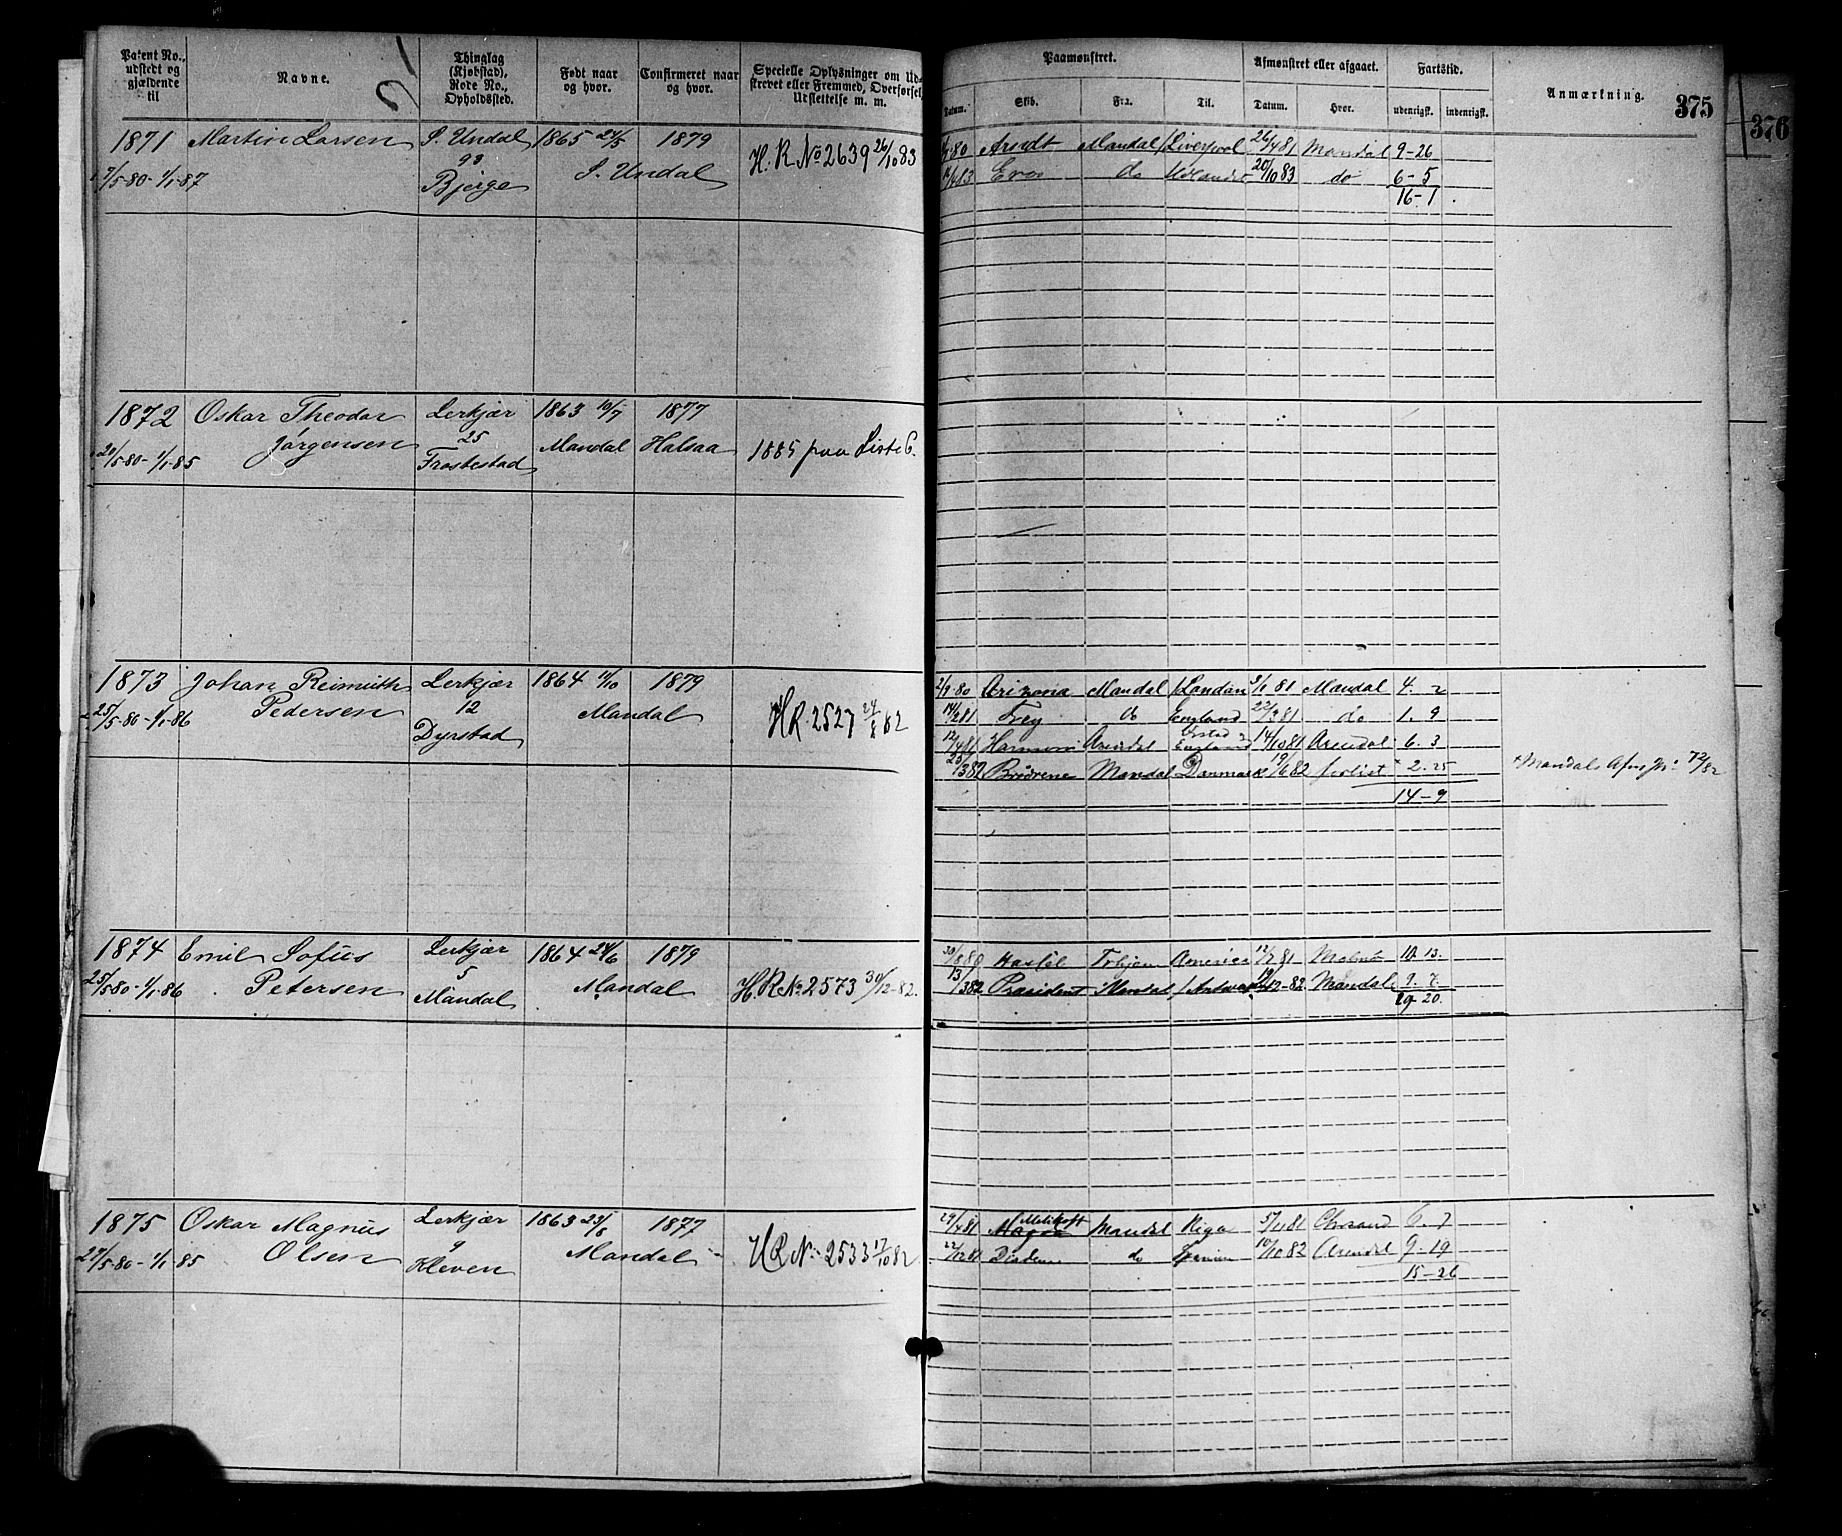 Patent No., udstedt og gjældende til
Navne.
Thinglag (Kjøbstad), Rode No., Opholdssted.
Født naar og hvor.
Confirmeret naar og hvor.
Specielle Oplysninger om Udskrevet eller Fremmed, Overførsel, Udslettelse m. m.
Paamønstret.
Datum. Skib. Fra. Til.
Afmønstret eller afgaaet.
Datum. Hvor.
Fartstid.
udenrigsk. indenrigsk.
Anmærkning.
375
376
1871 Martin Larsen S. Undal 1865 1879 H. R No 2639 26/10 83
7/5-80-1/1-87 93 S. Undal
Bjerge
80 Arndt Mandal Liverpool 26/4 81 Mandal 9-26
83 Eros do Udlandet 20/10 83 do 6-5
16-1
1872 Oskar Theodor Lerkjær 1863 10/7 1877
Jørgensen 25 Mandal Halsaa 1885 paa Liste 6.
21/5-80-1/1-85 Frostestad
1873 Johan Reimuth Lerkjær 1864 1879
Pedersen 12 Mandal HR. 2527 82
25/5-80-1/1-86 Dyrstad
80 Arizona Mandal London 81 Mandal 4. 2
14/2 81 Frey do England 81 do 1. 9
12/4 81 Arendal England 14/10 81 Arendal 6. 3
82 Brødrene Mandal Danmark 19/6 82 forlist + 2. 25
14-9
+ Mandals 72/82
1874 Emil Sofus Lerkjær 1864 24/6 1879
Petersen 5 Mandal H. R No 2573 30/12-82.
25/5-80-1/1-86 Mandal
30/8 80 America 81 10. 13.
13/3 82 President Mandal 12-82 Mandal 9. 7.
19 20.
1875 Oskar Magnus Lerkjær 1863 23/8 1877
Olsen 9 Mandal HR No 2533 17/10 82
27/5-80-1/1-85 Kleven
29/4 81 Mandal Riga 5/11 81 Chrsand 6. 7
22/12 81 do 10/10 82 Arendal 9-19
15-26